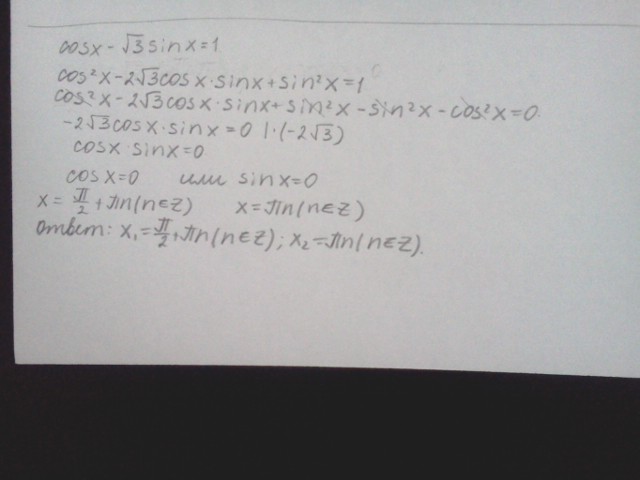 cosx - √3 sinx = 1
cos²x - 2√3cosx·sinx + sin²x = 1
cos²x - 2√3cosx·sinx + sin²x - sin²x - cos²x = 0
-2√3cosx·sinx = 0 |·(-2√3)
cosx·sinx = 0
cosx = 0 или sinx = 0
x = π/2 + πn (n∈Z) x = πn (n∈Z)
ответ: x₁ = π/2 + πn (n∈Z); x₂ = πn (n∈Z).